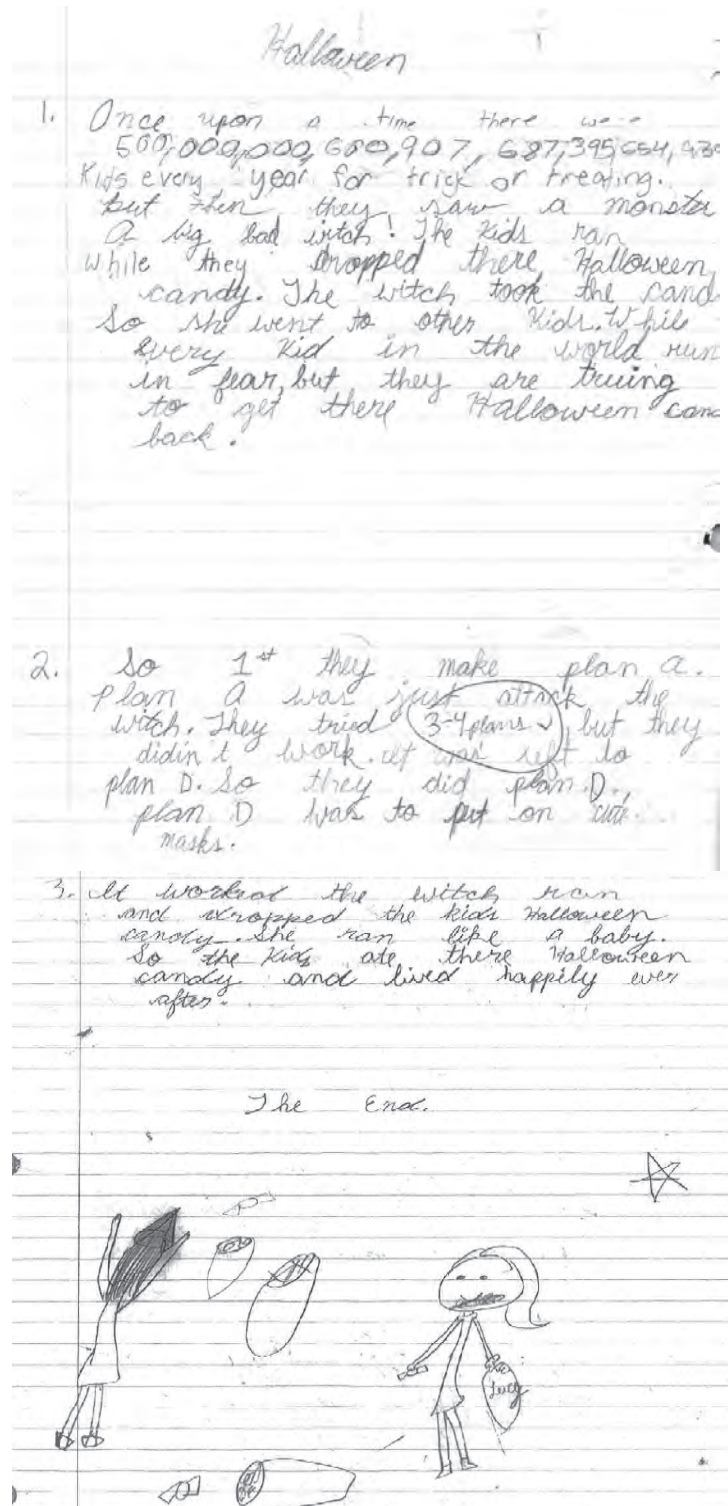 Halloween
1. Once upon a time there we
500,000,000,680,907, 687,395,654,
Kids every year for trick or treating.
but then they saw a monster
A big bad witch! The Kids ran
while they dropped there Halloween
candy. The witch took the cand
So she went to other Kids. While
every kid in the world run
in fear, but they are truing
to get there Halloween canc
back.
2. So 1st they make plan a.
Plan A was just attack the
witch. They tried 3-4 plans, but they
didin't work. It was left to
plan D. So they did plan D.
plan D was to put on cute
masks.
3. It worked the witch ran
and dropped the kids Halloween
candy. She ran like a baby.
So the Kids ate there Halloween
candy and lived happily ever
after.
The End.
Lucy